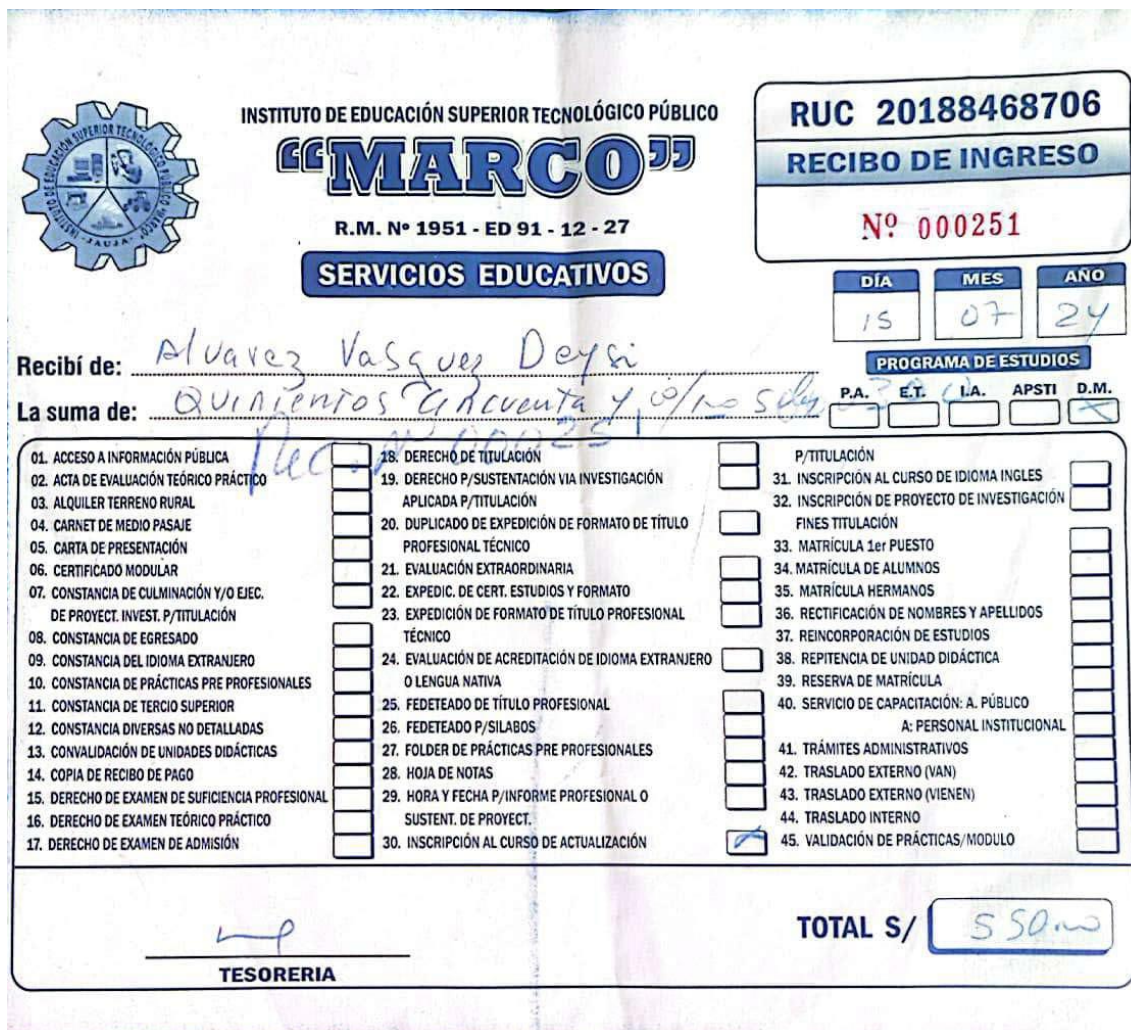 INSTITUTO DE EDUCACIÓN SUPERIOR TECNOLÓGICO PÚBLICO
"MARCO"
R.M. Nº 1951 - ED 91 - 12 - 27
SERVICIOS EDUCATIVOS
INSTITUTO DE EDUCACIÓN SUPERIOR TECNOLÓGICO PÚBLICO "MARCO"
- JAUJA -
RUC 20188468706
RECIBO DE INGRESO
Nº 000251
DÍA MES AÑO
15 07 24
Recibí de: Alvarez Vasquez Deysi
PROGRAMA DE ESTUDIOS
P.A. E.T. I.A. APSTI D.M.
La suma de: Quinientos Cincuenta y
Rec. Nº 000251
01. ACCESO A INFORMACIÓN PÚBLICA
02. ACTA DE EVALUACIÓN TEÓRICO PRÁCTICO
03. ALQUILER TERRENO RURAL
04. CARNET DE MEDIO PASAJE
05. CARTA DE PRESENTACIÓN
06. CERTIFICADO MODULAR
07. CONSTANCIA DE CULMINACIÓN Y/O EJEC.
DE PROYECT. INVEST. P/TITULACIÓN
08. CONSTANCIA DE EGRESADO
09. CONSTANCIA DEL IDIOMA EXTRANJERO
10. CONSTANCIA DE PRÁCTICAS PRE PROFESIONALES
11. CONSTANCIA DE TERCIO SUPERIOR
12. CONSTANCIA DIVERSAS NO DETALLADAS
13. CONVALIDACIÓN DE UNIDADES DIDÁCTICAS
14. COPIA DE RECIBO DE PAGO
15. DERECHO DE EXAMEN DE SUFICIENCIA PROFESIONAL
16. DERECHO DE EXAMEN TEÓRICO PRÁCTICO
17. DERECHO DE EXAMEN DE ADMISIÓN
18. DERECHO DE TITULACIÓN
19. DERECHO P/SUSTENTACIÓN VIA INVESTIGACIÓN
APLICADA P/TITULACIÓN
20. DUPLICADO DE EXPEDICIÓN DE FORMATO DE TÍTULO
PROFESIONAL TÉCNICO
21. EVALUACIÓN EXTRAORDINARIA
22. EXPEDIC. DE CERT. ESTUDIOS Y FORMATO
23. EXPEDICIÓN DE FORMATO DE TÍTULO PROFESIONAL
TÉCNICO
24. EVALUACIÓN DE ACREDITACIÓN DE IDIOMA EXTRANJERO
O LENGUA NATIVA
25. FEDETEADO DE TÍTULO PROFESIONAL
26. FEDETEADO P/SILABOS
27. FOLDER DE PRÁCTICAS PRE PROFESIONALES
28. HOJA DE NOTAS
29. HORA Y FECHA P/INFORME PROFESIONAL O
SUSTENT. DE PROYECT.
30. INSCRIPCIÓN AL CURSO DE ACTUALIZACIÓN
P/TITULACIÓN
31. INSCRIPCIÓN AL CURSO DE IDIOMA INGLES
32. INSCRIPCIÓN DE PROYECTO DE INVESTIGACIÓN
FINES TITULACIÓN
33. MATRÍCULA 1er PUESTO
34. MATRÍCULA DE ALUMNOS
35. MATRÍCULA HERMANOS
36. RECTIFICACIÓN DE NOMBRES Y APELLIDOS
37. REINCORPORACIÓN DE ESTUDIOS
38. REPITENCIA DE UNIDAD DIDÁCTICA
39. RESERVA DE MATRÍCULA
40. SERVICIO DE CAPACITACIÓN: A. PÚBLICO
A: PERSONAL INSTITUCIONAL
41. TRÁMITES ADMINISTRATIVOS
42. TRASLADO EXTERNO (VAN)
43. TRASLADO EXTERNO (VIENEN)
44. TRASLADO INTERNO
45. VALIDACIÓN DE PRÁCTICAS/MODULO
TESORERIA
TOTAL S/ 550.00